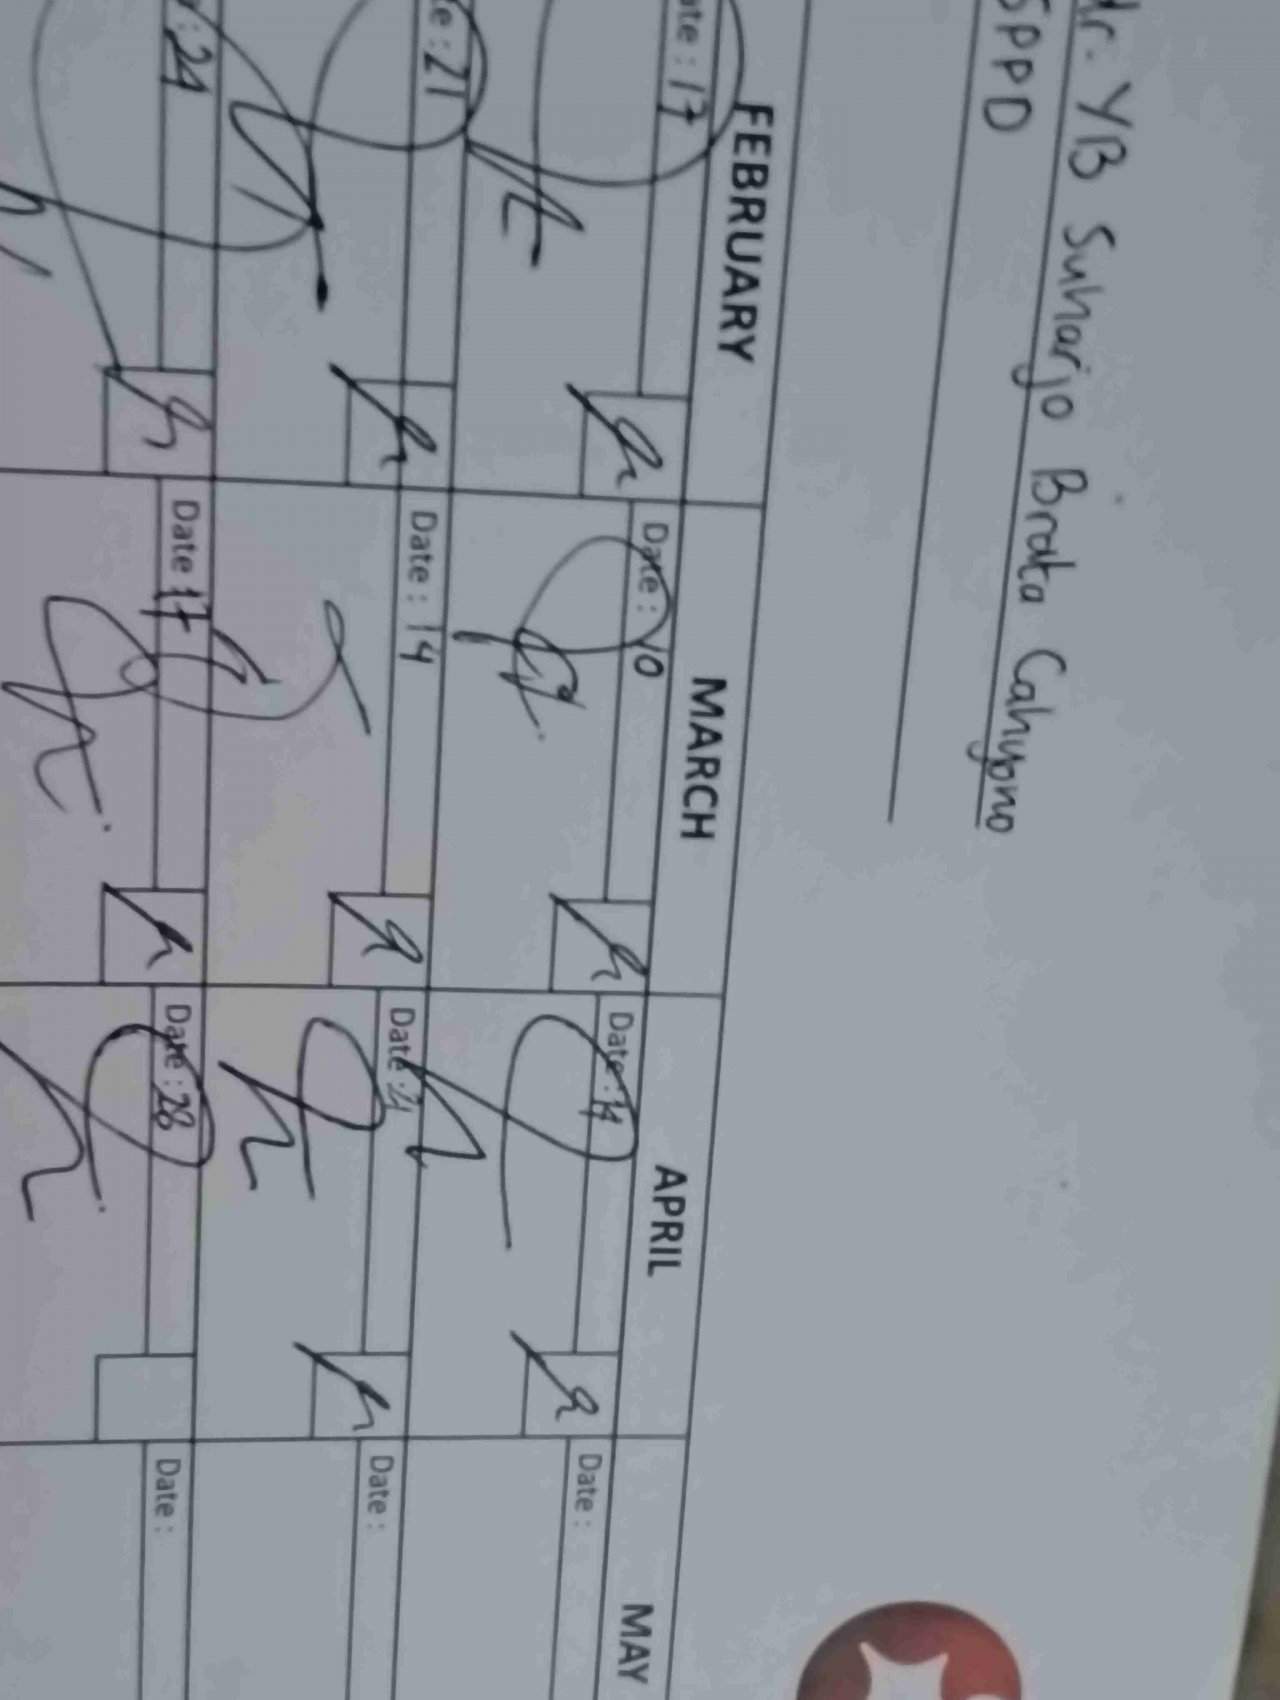 Mr. YB Suharjo Brata Cahyono
SPPD
FEBRUARY MARCH APRIL MAY
ate : 17 Date : 10 Date : 14 Date :
te : 21 Date : 14 Date : 21 Date :
: 24 Date : 17 Date : 28 Date :